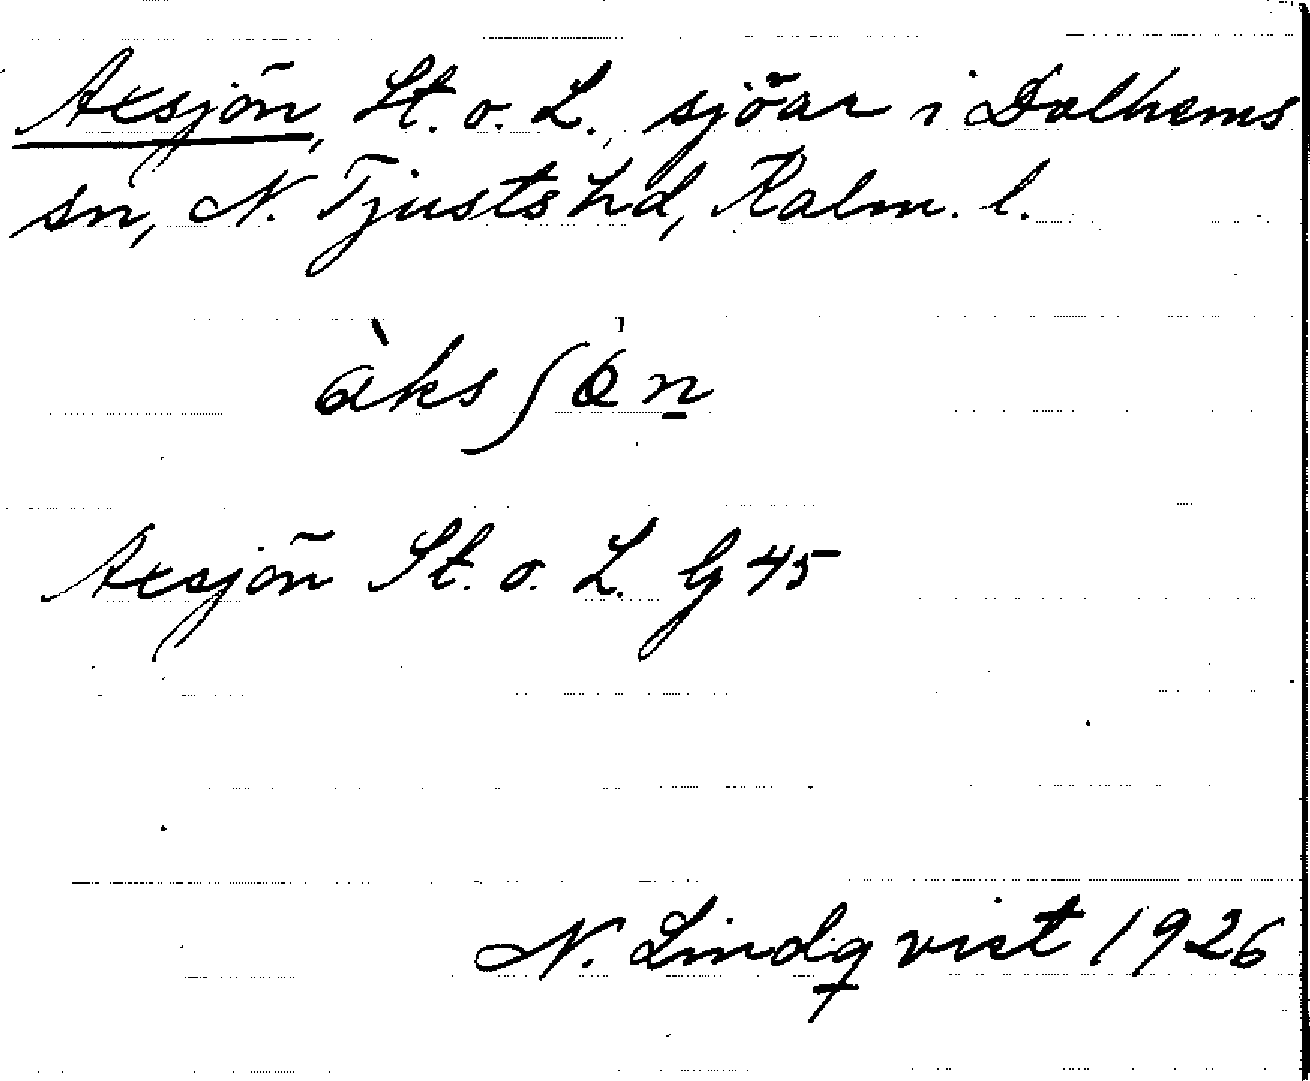 Axsjön, St. o. L., sjöar i Dalhems
sn, N. Tjusts hd, Kalm. l.
àksʃön
Axsjön St. o. L. G 45
N. Lindqvist 1926